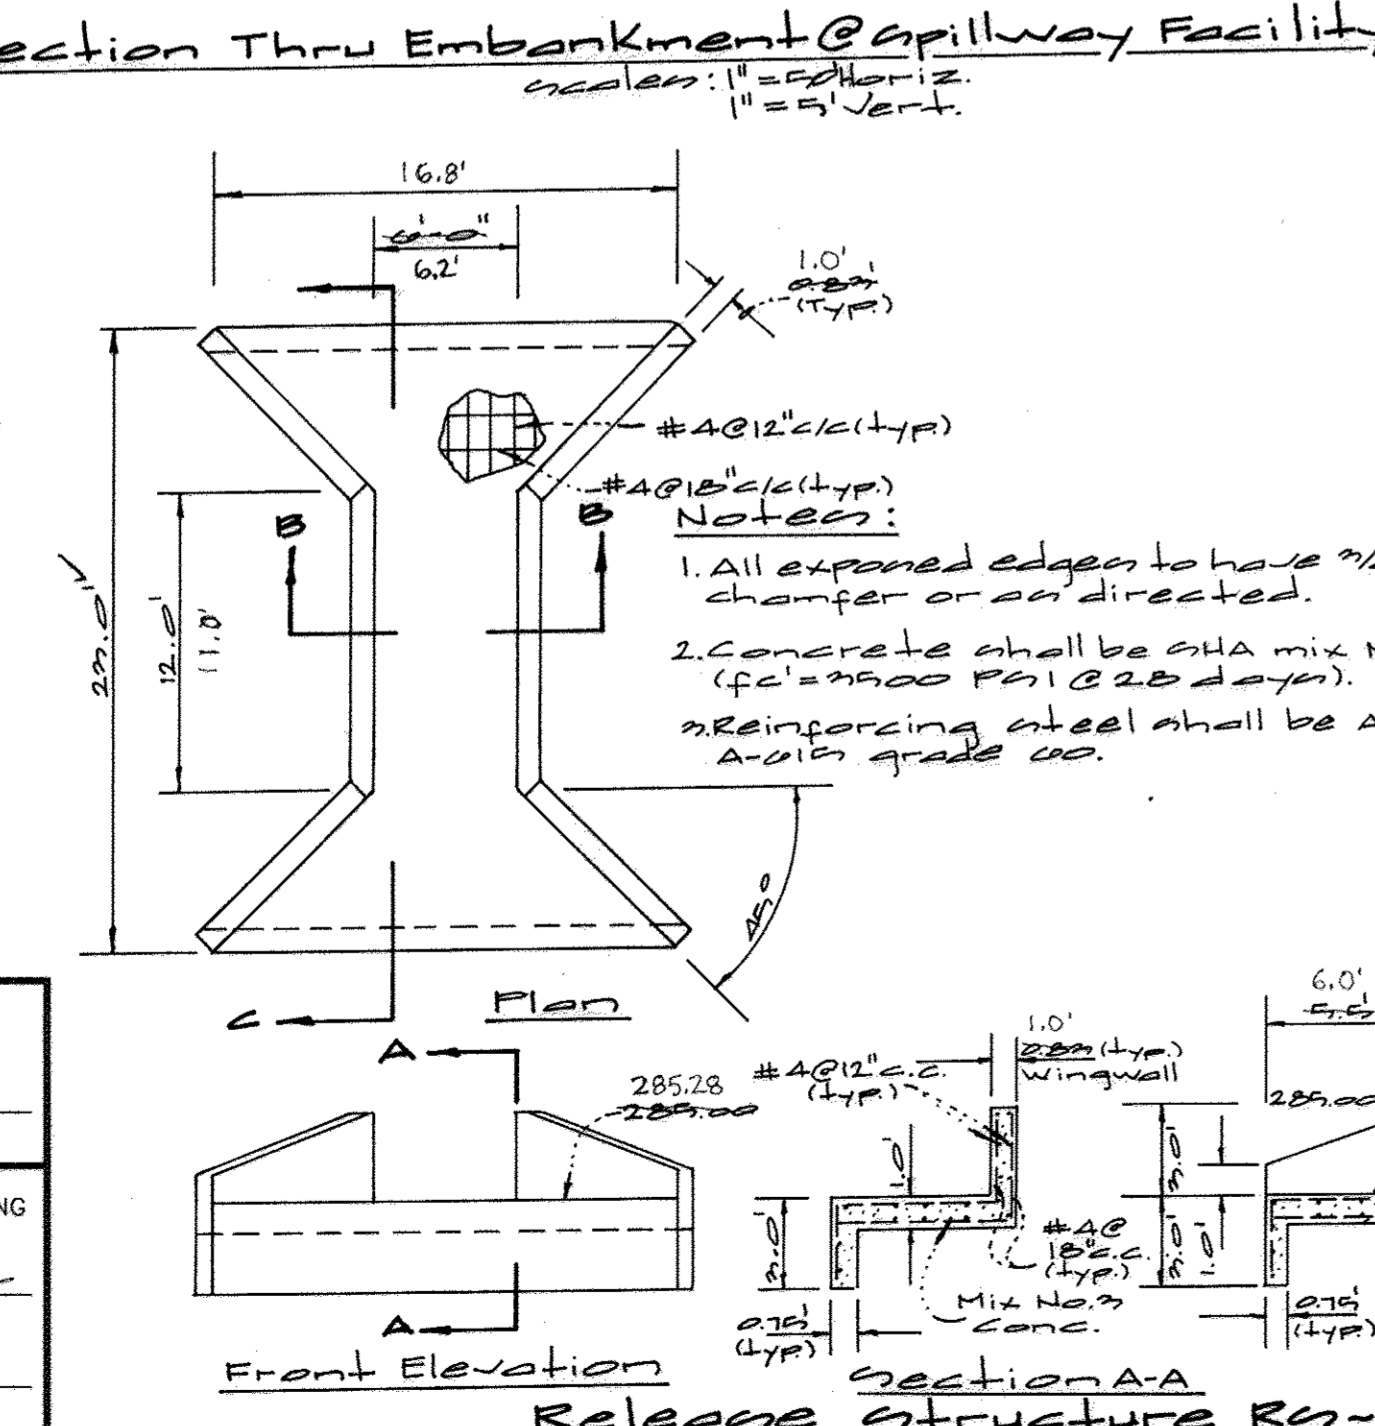 ection Thru Embankment @ Spillway Facility
scales: 1" = 50' Horiz.
1" = 5' Vert.
16.8'
6'-0"
6.2'
1.0'
0.83'
(Typ.)
#4@12"c/c(typ.)
#4@18"c/c(typ.)
B
B
23.0'
12.0'
11.0'
Notes:
1. All exposed edges to have 3/
chamfer or as directed.
2. Concrete shall be SHA mix N
(fc'=3500 PSI @ 28 days).
3. Reinforcing steel shall be A
A-615 grade 60.
45°
C
Plan
A
285.28
285.00
A
Front Elevation
#4@12"c.c.
(typ.)
1.0'
0.83 (typ.)
wingwall
1.0'
3.0'
#4@
18"c.c.
(typ.)
Mix No.3
conc.
0.75'
(typ.)
Section A-A
6.0'
5.5'
285.00
3.0'
3.0'
1.0'
0.75'
(typ.)
NG
Release Structure RS-